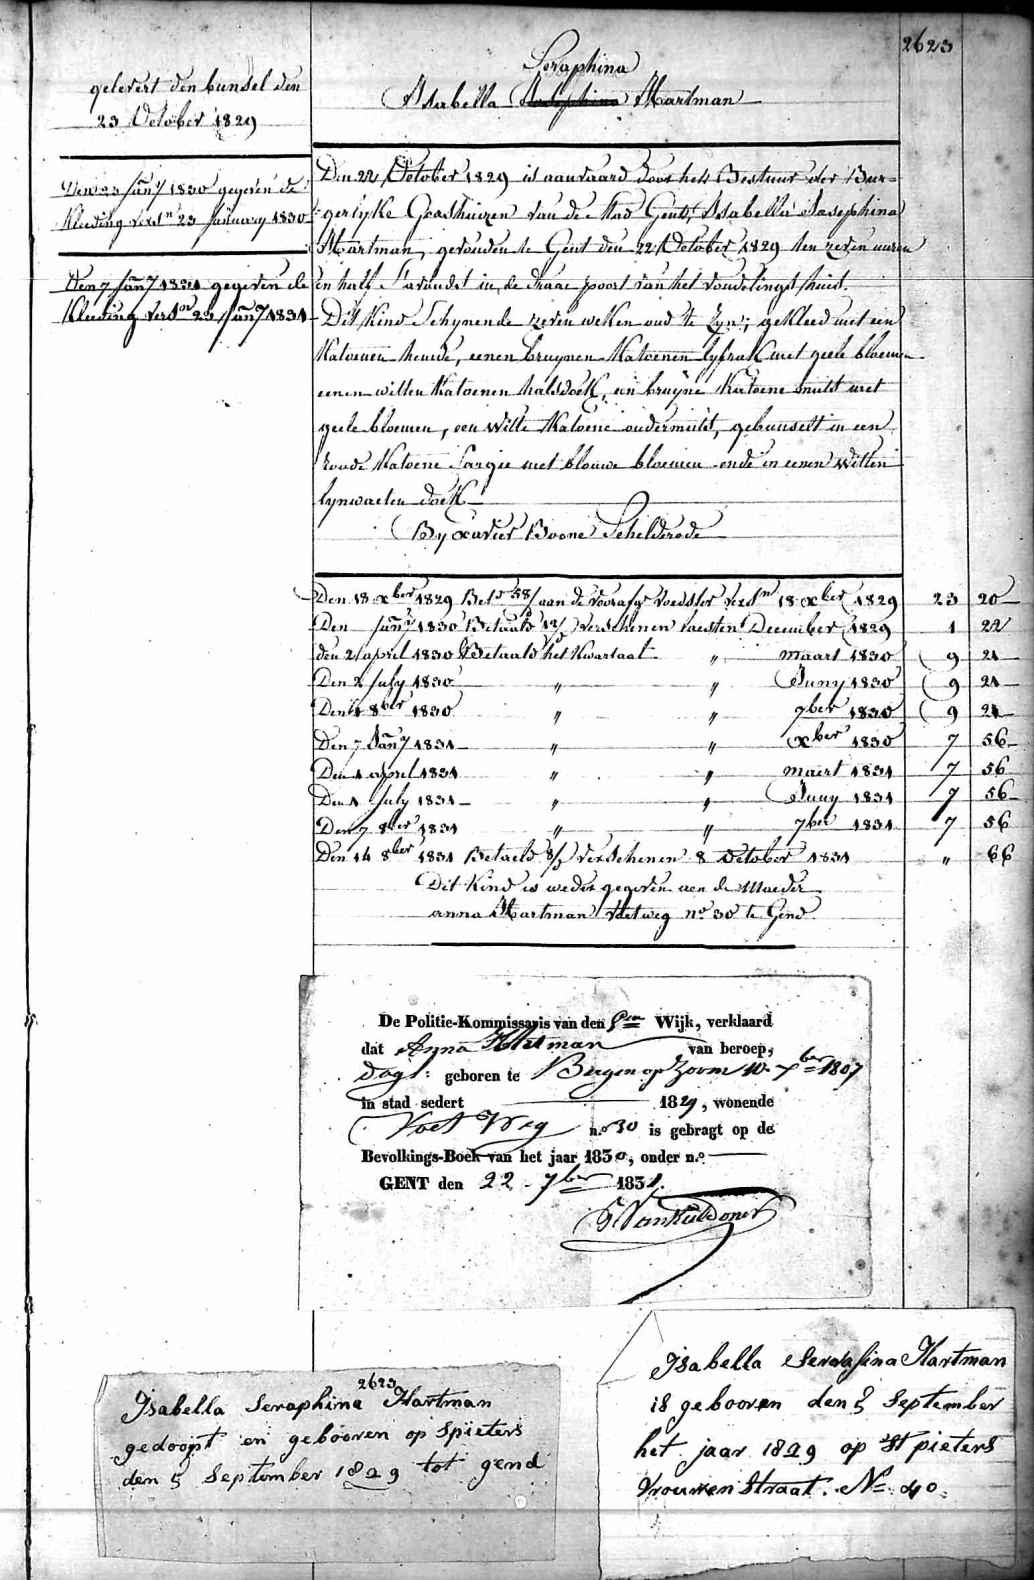 2623
Seraphina
Isabella Josephina Hartman
gelevert den bunsel den
23 October 1829
Den 23 Jany 1830 gegeven de
Kleeding versn 23 January 1830
Den 7 Jany 1831 gegeven de
Kleeding versen 23 Jany 1831
Den 22 October 1829 is aanvaard door het Bestuur der Bur=
gerlyke Godshuizen van de Stad Gent, Isabella Josephina
Hartman, gevonden te Gent den 22 October 1829 ten zeven uuren
en half s'avonds in de draae poort van het vondelingshuis.
Dit Kind Schynende zeven weken oud te zyn; gekleed met een
Katoenen hemde, eenen bruynen Katoenen lyfrok met geele bloemen
eenen witten Katoenen halsdoek, een bruyne Katoene muts met
geele bloemen, een witte Katoene ondermuts, gebunselt in een
roode Katoene Sargie met blouwe bloemen ende in eenen witten
lynwaeten doek
By Xavier Boone Schelderode
Den 18 Xber 1829 Bets 58/ aan de voorafge voedster versn 18 Xber 1829 23 20
Den Jany 1830 Betaald 12/ verschenen laesten December 1829 1 22
den 2 april 1830 Betaald het Kwartaal " maart 1830 9 21
Den 2 July 1830 " " Juny 1830 9 21
Den 1 8ber 1830 " " 7ber 1830 9 21
Den 7 Jany 1831 " " Xber 1830 7 56
Den 1 april 1831 " " maert 1831 7 56
Den 1 July 1831 " " Juny 1831 7 56
Den 7 8ber 1831 " " 7ber 1831 7 56
Den 14 8ber 1831 Betaeld 8/ verschenen 8 October 1831 " 66
Dit Kind is weder gegeven aen de Moeder
anna Hartman voetweg no 30 te Gend
De Politie-Kommissaris van den 5en Wijk, verklaard
dat Anna Hartman van beroep,
dagl: geboren te Bergen op Zoom 10 7ber 1807
in stad sedert 1829, wonende
Voet Weg n.o 30 is gebragt op de
Bevolkings-Boek van het jaar 1830, onder n.o
GENT den 22 7ber 1831.
2623
Isabella Seraphina Hartman
gedoopt en gebooren op Spieters
den 5 September 1829 tot gend
Isabella Serafina Hartman
is gebooren den 5 September
het jaar 1829 op St pieters
Vrouwen Straat. No 40.